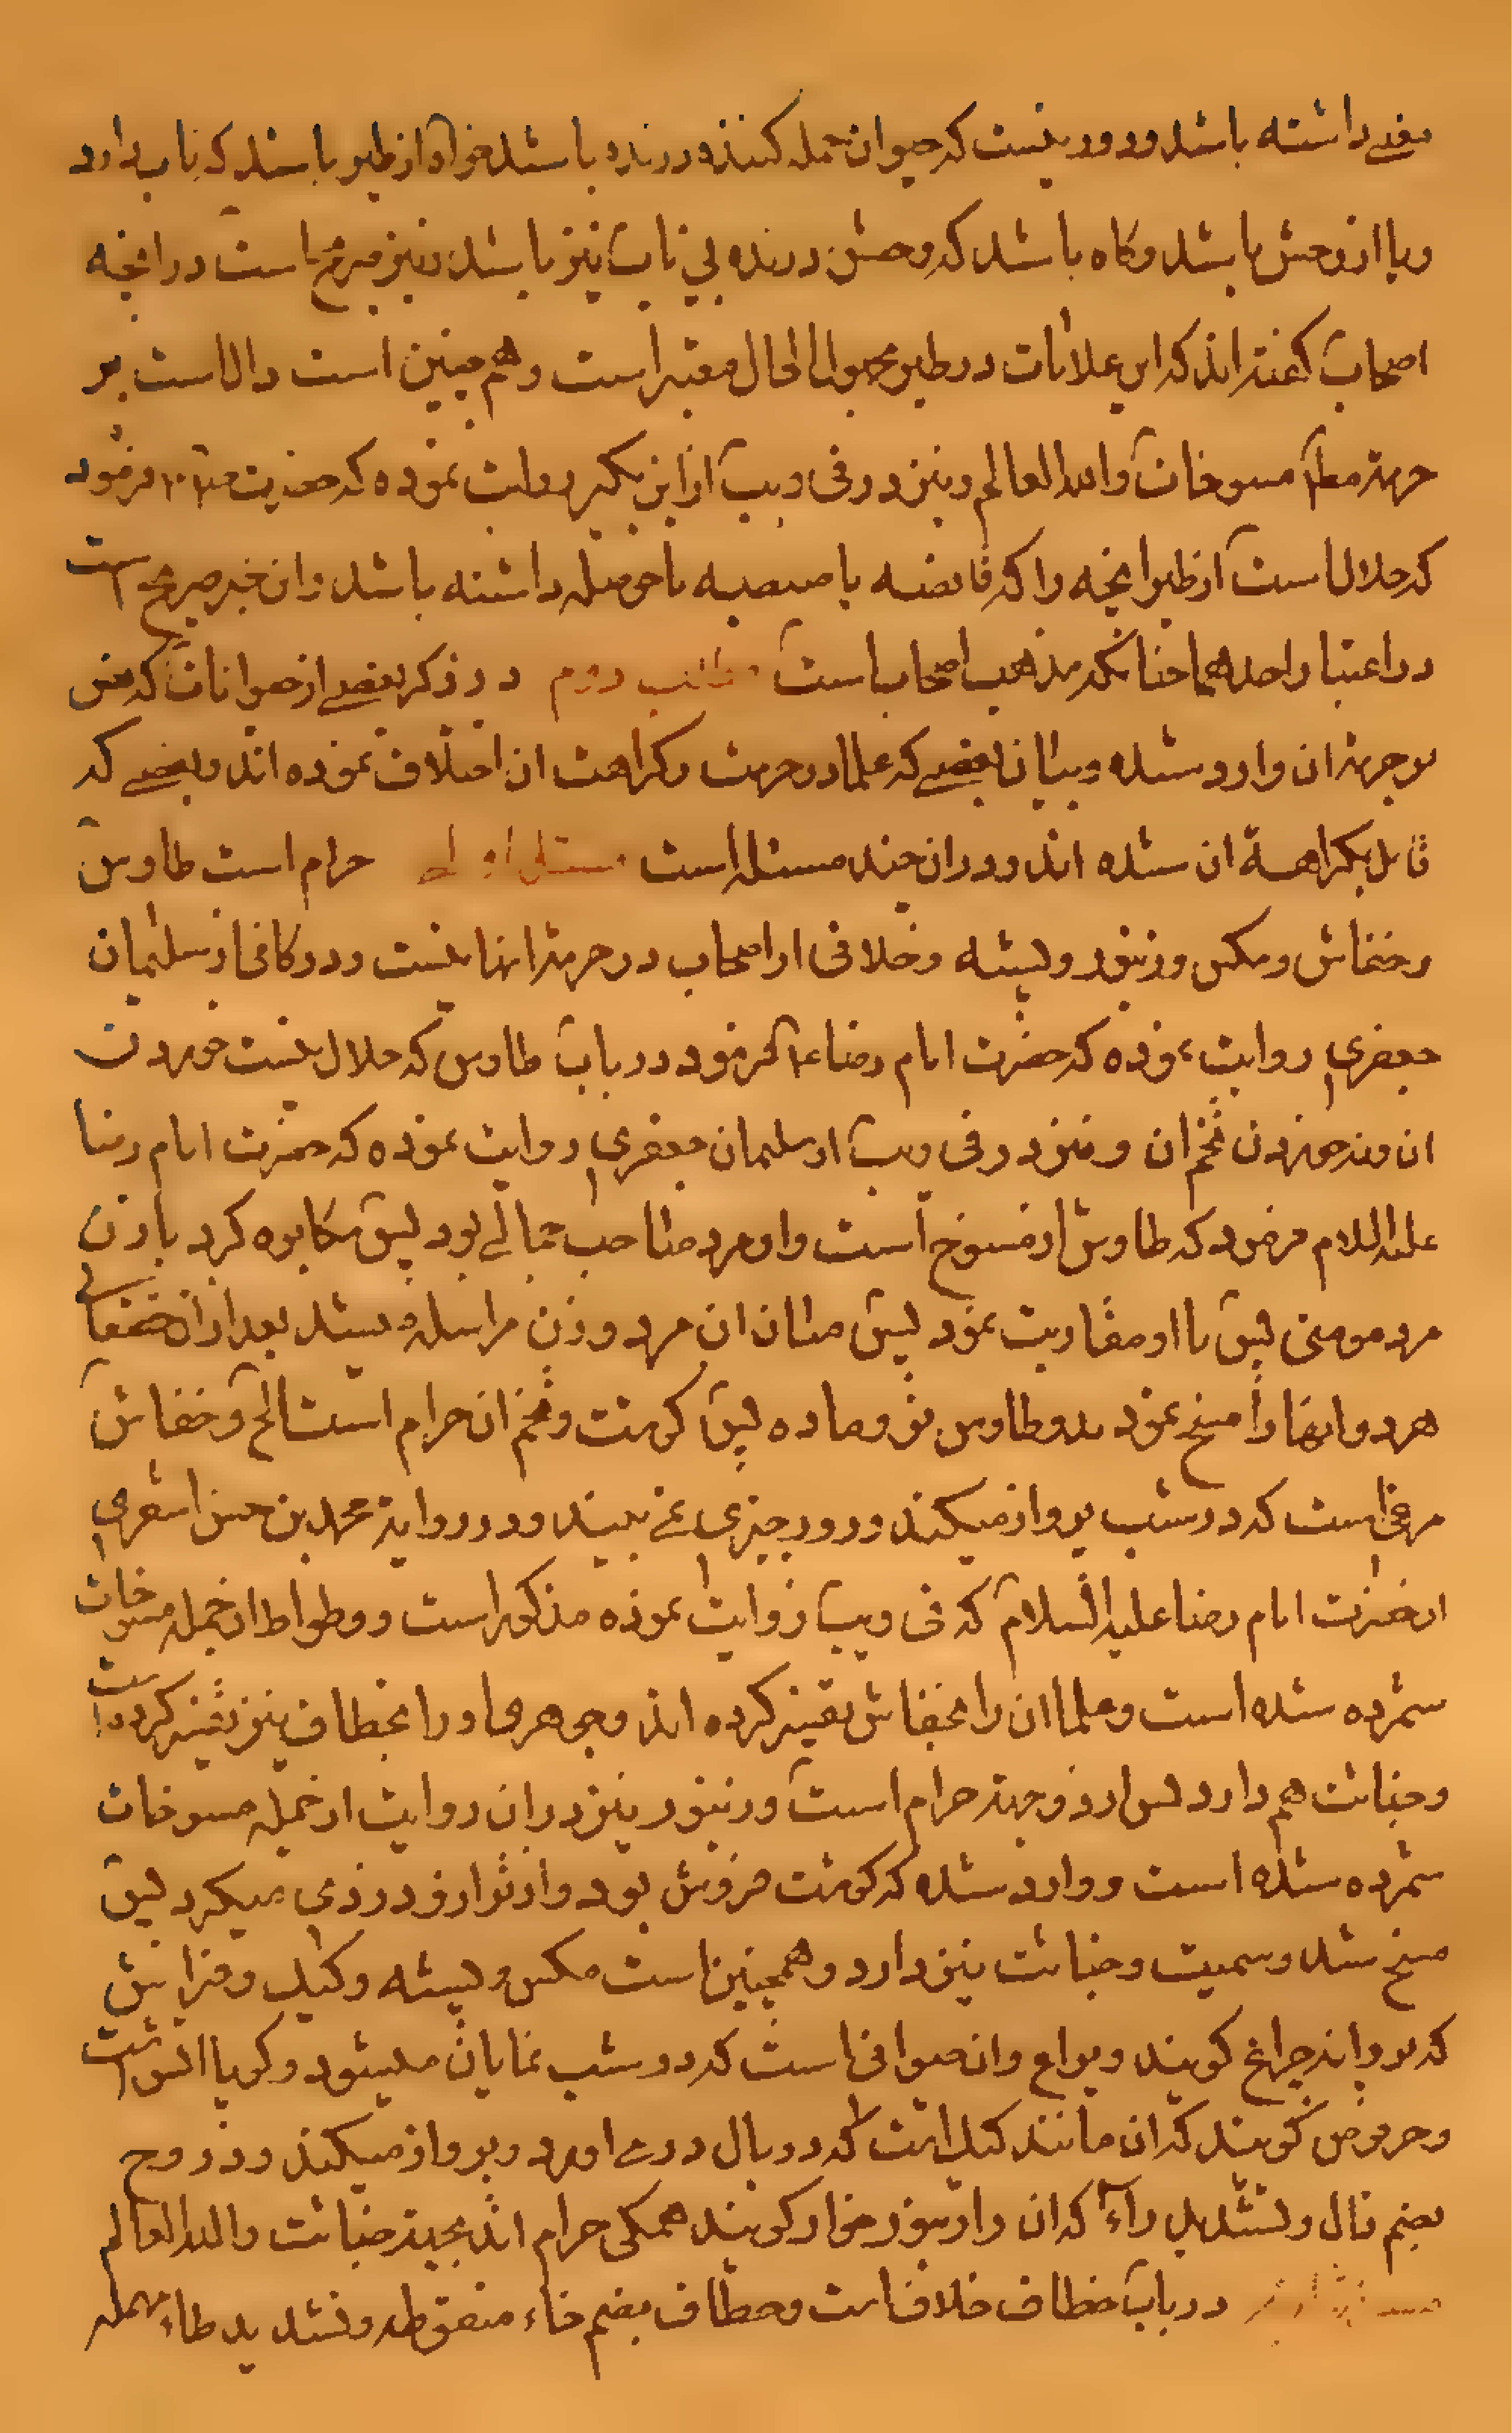 بعضے داشته باشد و دور نیست که حیوان حمله کننده درنده باشد خواه از طیر باشد که ناب دارد
ویا از وحش باشد و گاه باشد که وحش درنده بی ناب نیز باشد و نیز صریح است در انچه
اصحاب گفته اند که این علامات در طیر مجهول الحال معتبر است و هم چنین است دال است بر
حرمة مطلق مسوخات والله العالم و نیز در فی ویب از ابن بکیر روایت نموده که حضرت فرمود
که حلال است از طیر انچه را که قانصه یا صیصیه یا حوصله داشته باشد و ان خبر صریح است
در اعتبار احدهما چنانکه مذهب اصحاب است مطلب دوم در ذکر بعضے از حیوانات که نص
بر حرمة ان وارد شده و بیان بعضے که علما در حرمت و کراهت ان اختلاف نموده اند و بعضے که
قائل بکراهة ان شده اند و در ان چند مسئله است مسئله اولی حرام است طاوس
و خفاش و مکس و زنبور و پشه و خلافی از اصحاب در حرمة انها نیست و در کافی از سلیمان
جعفری روایت نموده که حضرت امام رضا ع فرمود در باب طاوس که حلال نیست خوردن
ان و نه خوردن تخم ان و نیز در فی ویب از سلیمان جعفری روایت نموده که حضرت امام رضا
علیه السلام فرمود که طاوس از مسوخ است و او مرد صاحب جمالے بود پس مکابره کرد با زن
مرد مومنی پس با او مقاربت نمود پس میان ان مرد و زن مراسله شد بعد از ان حقتعالے
هر دو انها را مسخ نمود بدو طاوس نر و ماده پس گوشت و تخم ان حرام است الخ و خفاش
مرغی است که در شب پرواز میکند و روز چیزی نمے بیند و در روایة محمد بن حسن اشعری
از حضرت امام رضا علیه السلام که فی ویب روایت نموده مذکور است و وطواط از جمله مسوخات
شمرده شده است و علما ان را بخفاش تفسیر کرده اند و جوهری او را بخطاف نیز تفسیر کرده است
و خباثت هم دارد پس از دو جهة حرام است و زنبور نیز در ان روایت از جمله مسوخات
شمرده شده است و وارد شده که گوشت فروش بود و از ترازو دزدی میکرد پس
مسخ شد و سمیت و خباثت نیز دارد و همچنین است مکس و پشه و کیک و فراش
که پروانه چراغ گویند و یراع و ان حیوانی است که در شب نمایان میشود و گویا اتش است
و حرقوص گویند که ان مانند کیک است که در بال در مے اورد و پرواز میکند و ذروح
بضم ذال و تشدید راء که ان را زنبور خوار گویند همگی حرام اند بجهة خباثت والله العالم
در باب خطاف خلاف است و خطاف بضم خاء منقوطه و تشدید طاء مهمله